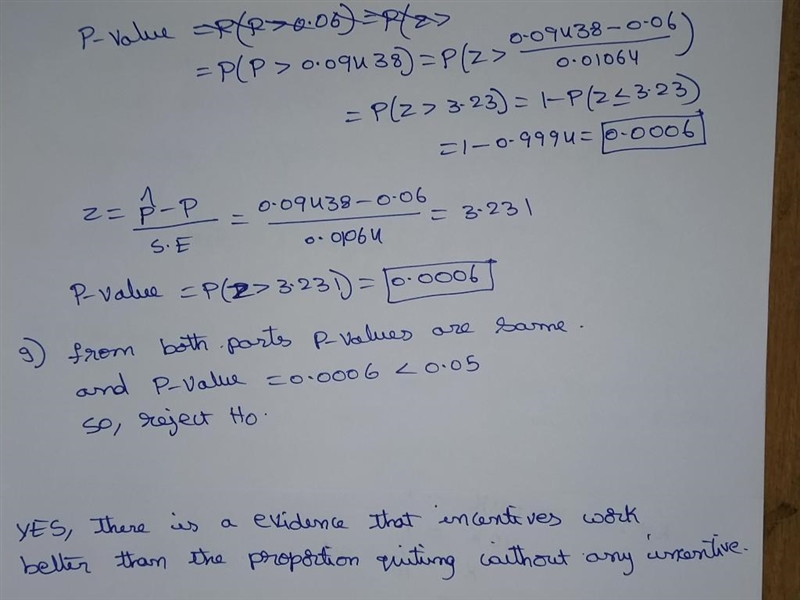 P-value = P(P > 0.06) = P(z >
= P(P > 0.09438) = P(Z > (0.09438 - 0.06)/0.01064)
= P(Z > 3.23) = 1-P(Z ≤ 3.23)
= 1 - 0.9994 = 0.0006
Z = (p̂ - P)/S.E = (0.09438 - 0.06)/0.01064 = 3.231
P-value = P(Z > 3.231) = 0.0006
9) from both parts P-values are same.
and P-value = 0.0006 < 0.05
So, reject Ho.
YES, there is a evidence that incentives work
better than the proportion quiting without any incentive.